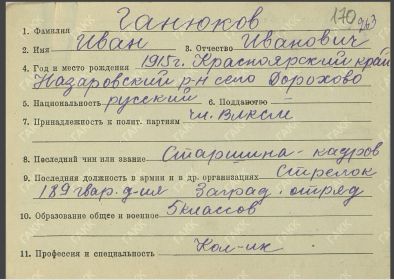 170
263
1. Фамилия Ганюков
2. Имя Иван 3. Отчество Иванович
4. Год и место рождения 1915г. Красноярский край
Назаровский р-н село Дорохово
5. Национальность русский 6. Подданство
7. Принадлежность к полит. партиям чл. ВЛКСМ
8. Последний чин или звание Старшина - кадров
9. Последняя должность в армии и в др. организациях Стрелок
189 гвар. д-ия Заград. отряд
10. Образование общее и военное 5 классов
11. Профессия и специальность Кол-ик